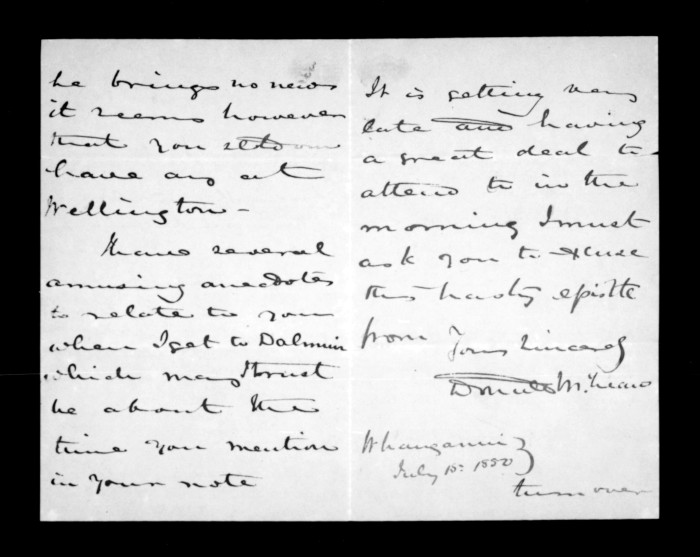 he brings no news
it seems however
that you seldom
have any at
Wellington -
I have several
amusing anecdotes
to relate to you
when I get to Dalmuir
which may I trust
be about the
time you mention
in your note
It is getting very
late and having
a great deal to
attend to in the
morning I must
ask you to excuse
this hasty epistle
from Yours Sincerely
Donald McLean
Whanganui
July 10th 1850
turn over